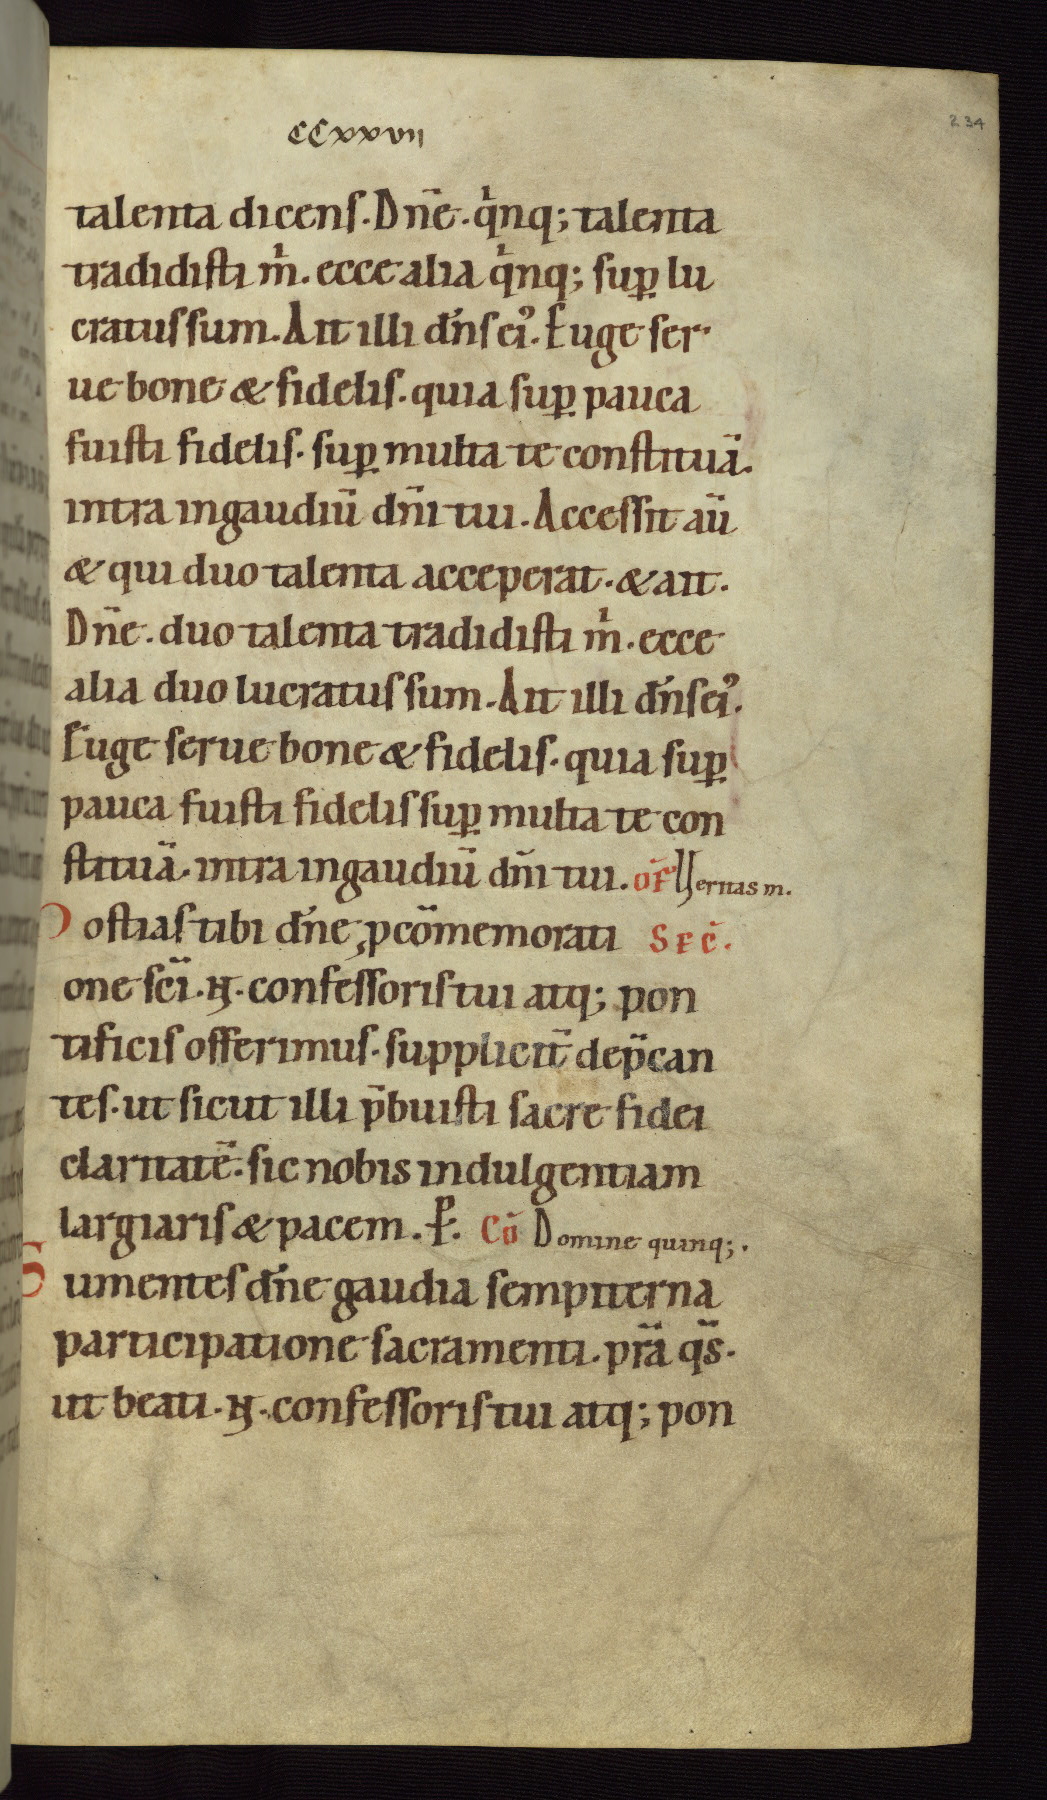 CCxxvii
234
talenta dicens. Dn̄e. qͥnq; talenta
tradidisti mͥ. ecce alia qͥnq; suꝑ lu
cratus sum. Ait illi dn̄s ei᾽. Euge ser
ue bone & fidelis. quia suꝑ pauca
fuisti fidelis. suꝑ multa te constituā.
intra in gaudiū dn̄i tui. Accessit aū
& qui duo talenta acceperat. & ait.
Dn̄e. duo talenta tradidisti mͥ. ecce
alia duo lucratus sum. Ait illi dn̄s ei᾽.
Euge serue bone & fidelis. quia suꝑ
pauca fuisti fidelis suꝑ multa te con
stituā. intra in gaudiū dn̄i tui. of̄ Ueritas m.
Hostias tibi dn̄e ꝓ cōmemorati Sec̄.
one sc̄i. N. confessoris tui atq; pon
tificis offerimus. supplicit̄ dep̄can
tes. ut sicut illi p̄buisti sacre fidei
claritatē. sic nobis indulgentiam
largiaris & pacem. P. Cō Domine quinq;.
Sumentes dn̄e gaudia sempiterna
participatione sacramenti. pr̄a q̄s.
ut beati. N. confessoris tui atq; pon